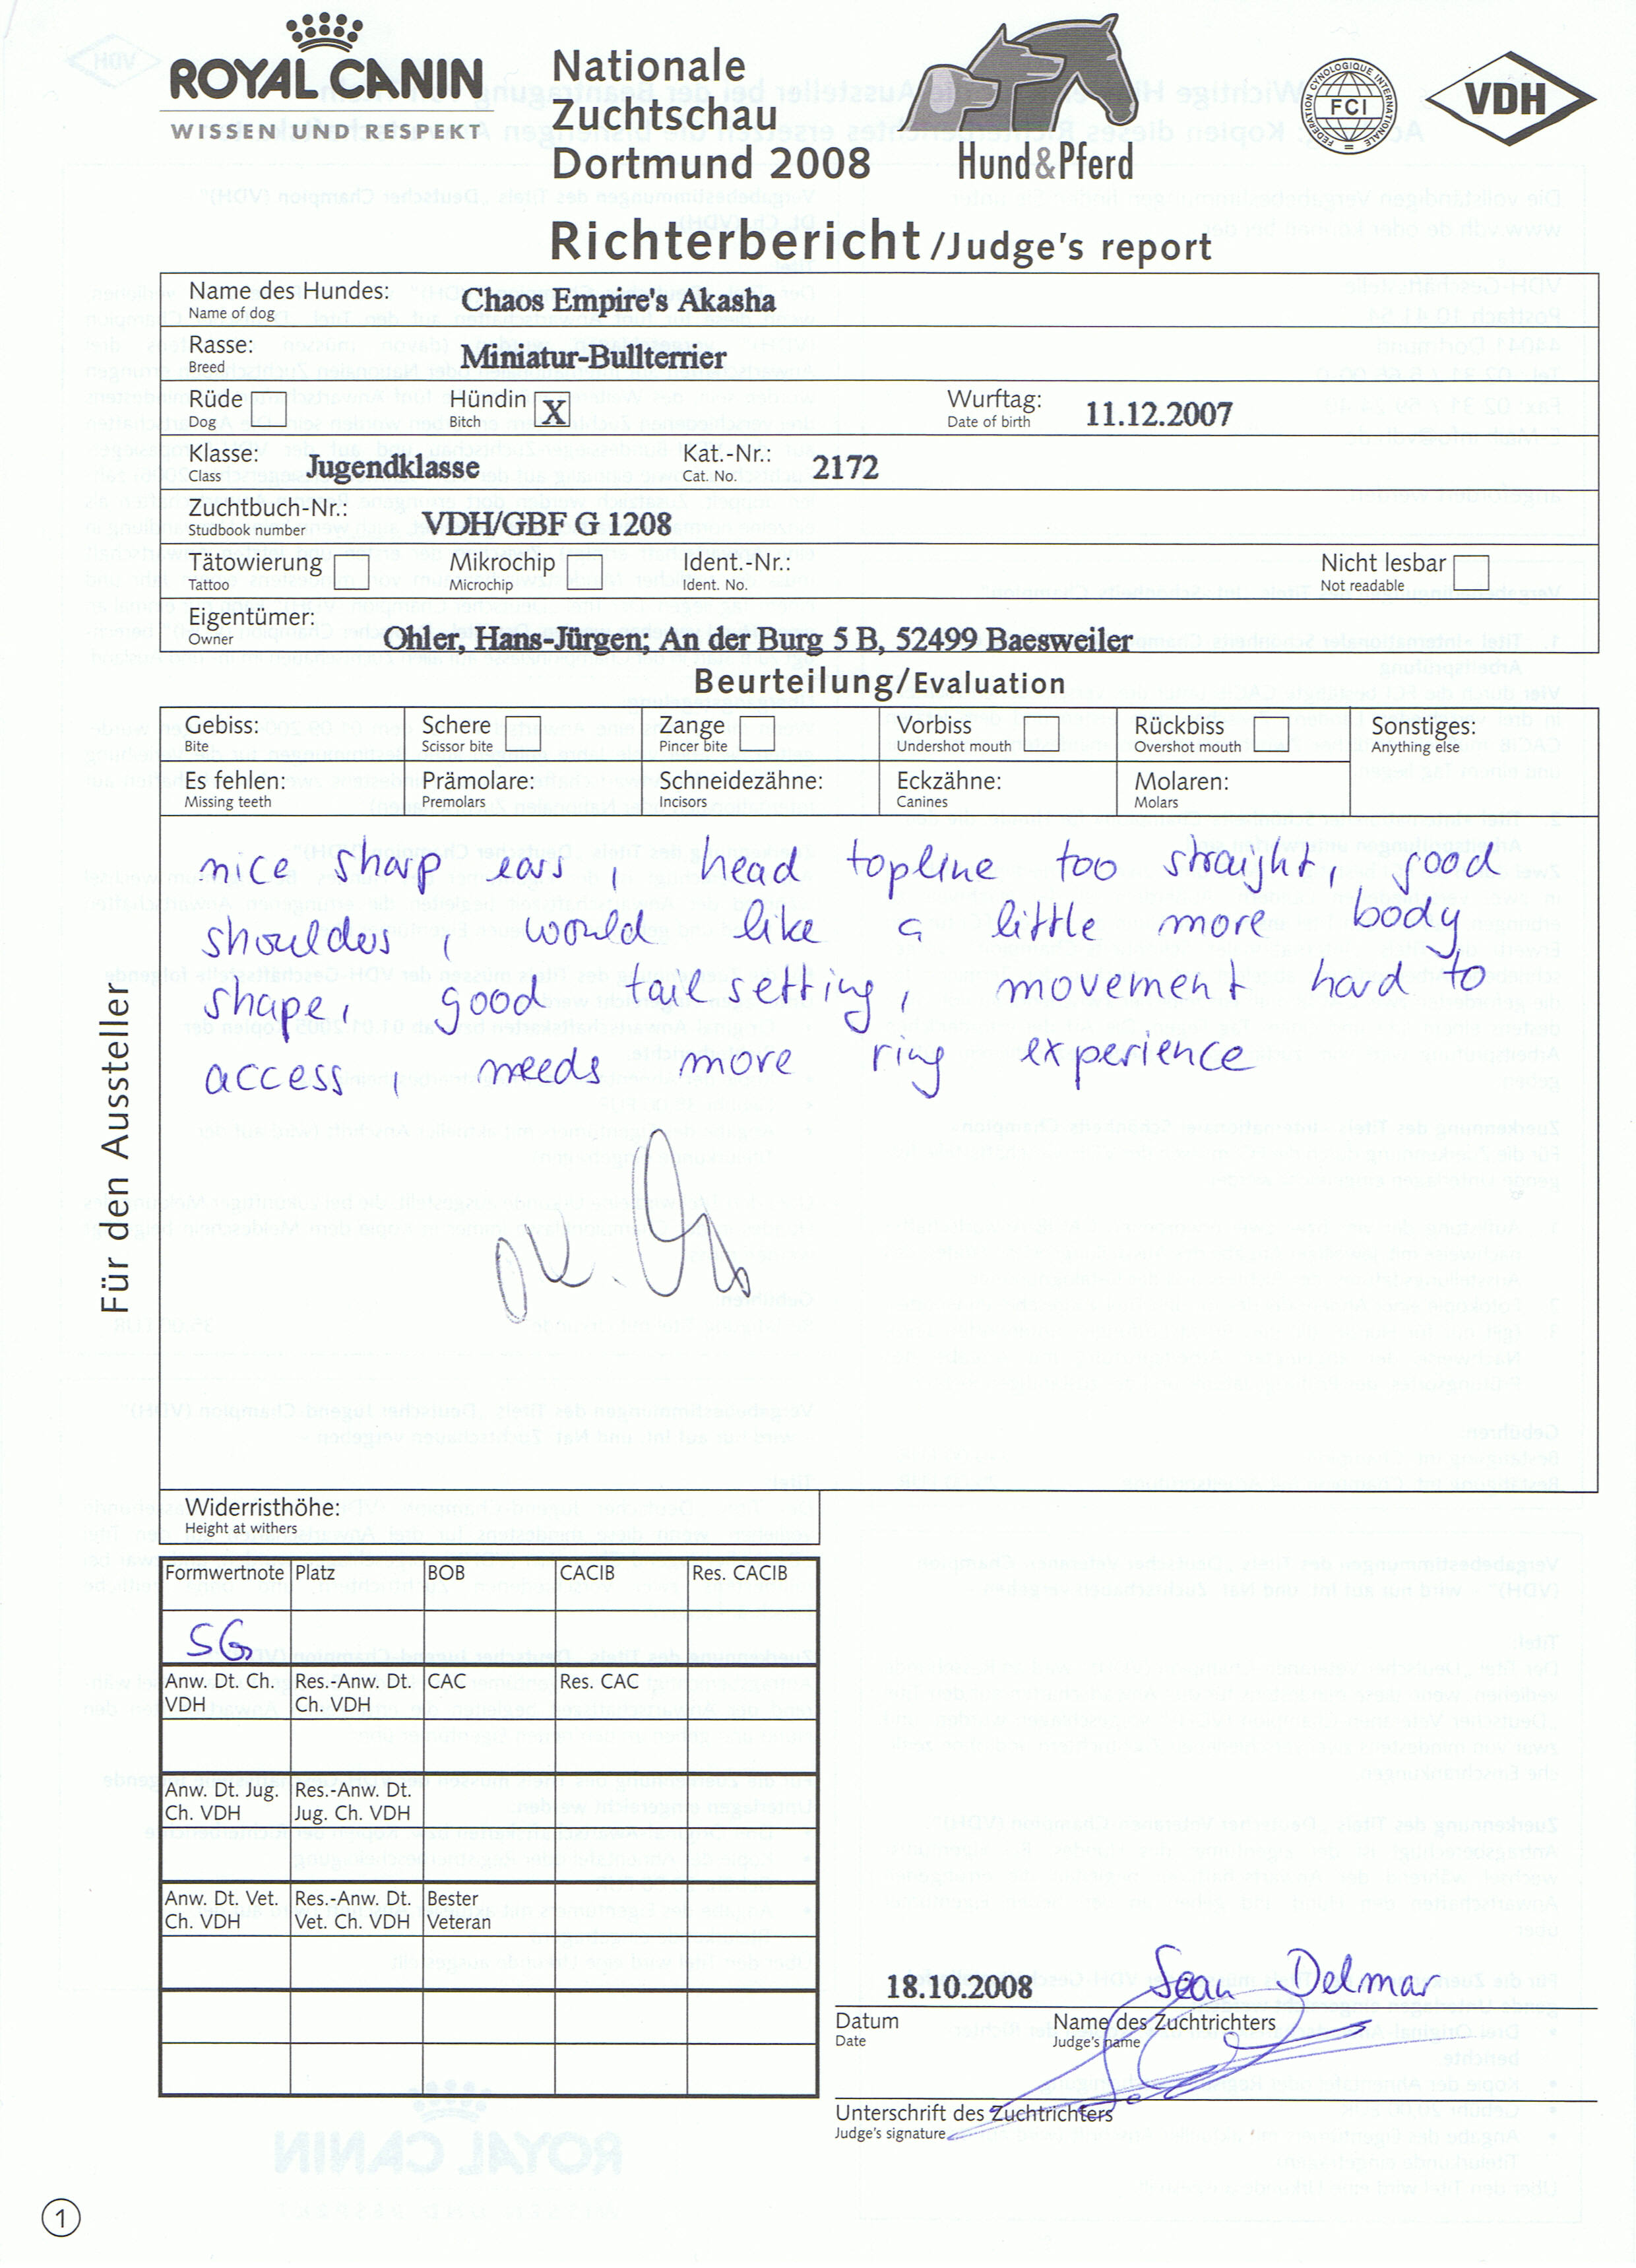 ROYAL CANIN
WISSEN UND RESPEKT
Nationale
Zuchtschau
Dortmund 2008
Hund&Pferd
FEDERATION CYNOLOGIQUE INTERNATIONALE
FCI
VDH
Richterbericht/Judge's report
Name des Hundes: Chaos Empire's Akasha
Name of dog
Rasse: Miniatur-Bullterrier
Breed
Rüde Hündin X Wurftag: 11.12.2007
Dog Bitch Date of birth
Klasse: Jugendklasse Kat.-Nr.: 2172
Class Cat. No.
Zuchtbuch-Nr.: VDH/GBF G 1208
Studbook number
Tätowierung Mikrochip Ident.-Nr.: Nicht lesbar
Tattoo Microchip Ident. No. Not readable
Eigentümer: Ohler, Hans-Jürgen; An der Burg 5 B, 52499 Baesweiler
Owner
Beurteilung/Evaluation
Gebiss: Schere Zange Vorbiss Rückbiss Sonstiges:
Bite Scissor bite Pincer bite Undershot mouth Overshot mouth Anything else
Es fehlen: Prämolare: Schneidezähne: Eckzähne: Molaren:
Missing teeth Premolars Incisors Canines Molars
Für den Aussteller
nice sharp ears, head topline too straight, good
shoulders, would like a little more body
shape, good tail setting, movement hard to
access, needs more ring experience
Widerristhöhe:
Height at withers
Formwertnote Platz BOB CACIB Res. CACIB
SG
Anw. Dt. Ch. Res.-Anw. Dt. CAC Res. CAC
VDH Ch. VDH
Anw. Dt. Jug. Res.-Anw. Dt.
Ch. VDH Jug. Ch. VDH
Anw. Dt. Vet. Res.-Anw. Dt. Bester
Ch. VDH Vet. Ch. VDH Veteran
18.10.2008 Sean Delmar
Datum Name des Zuchtrichters
Date Judge's name
Unterschrift des Zuchtrichters
Judge's signature
1